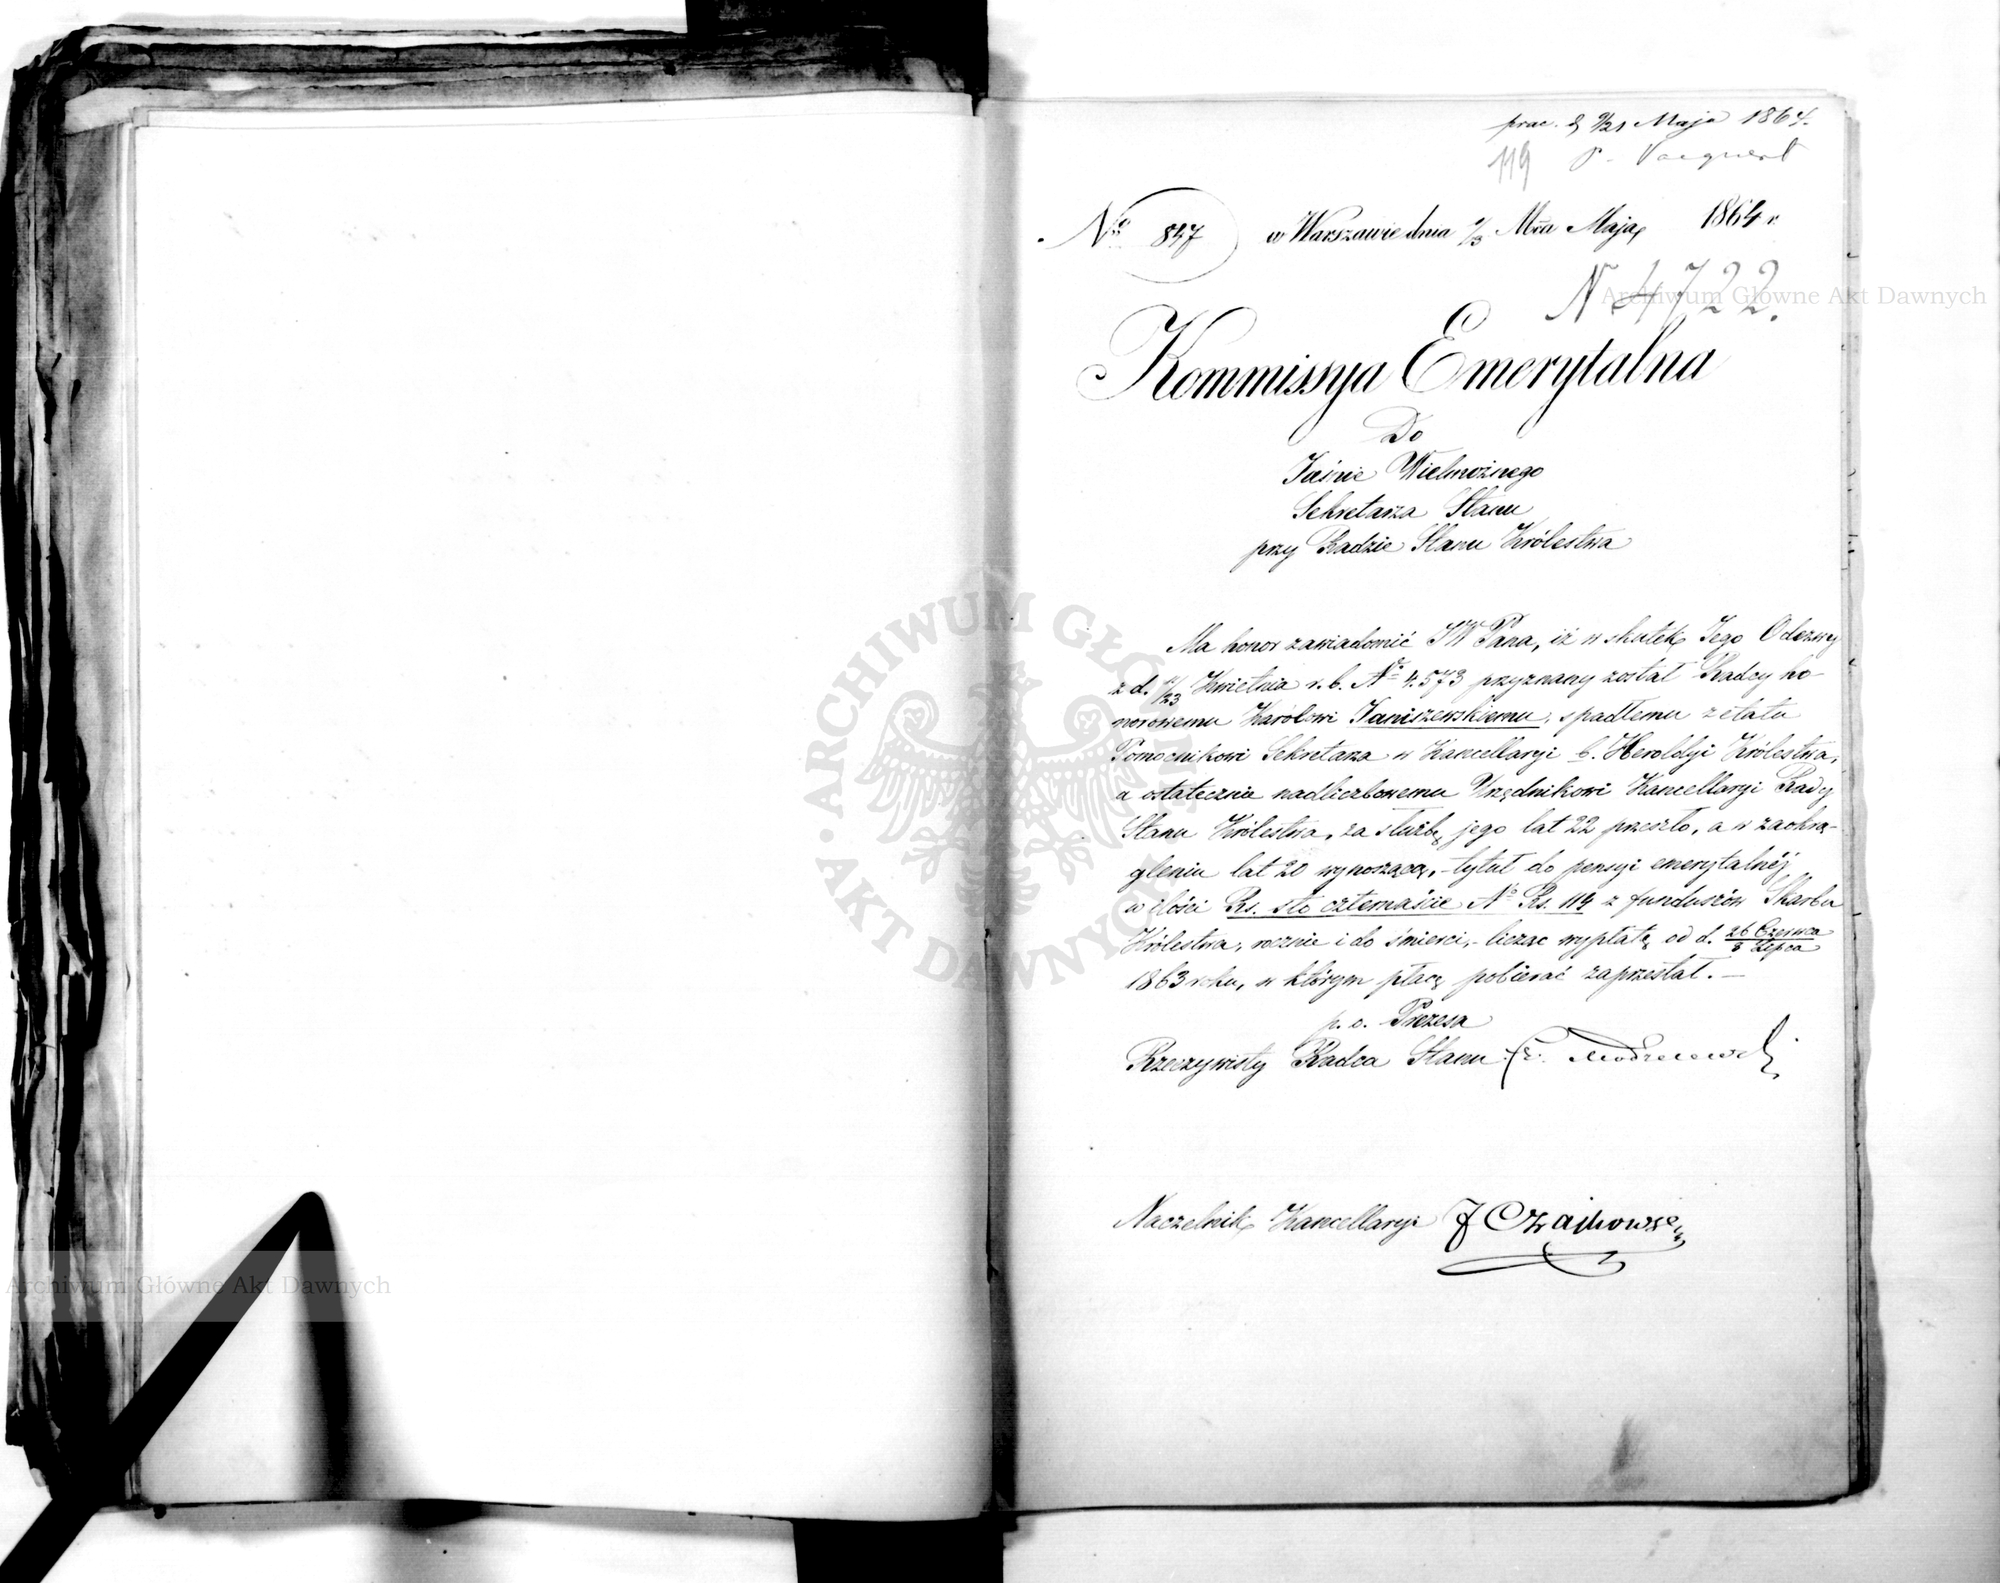 9/21 Maja 1864.
119
No 847 w Warszawie dnia 1/13 Mca Maja 1864 r.
N 4722.
Archiwum Główne Akt Dawnych
Kommissya Emerytalna
Do
Jaśnie Wielmożnego
Sekretarza Stanu
przy Radzie Stanu Królestwa
Ma honor zawiadomić JW Pana, iż w skutek Jego Odezwy
z d. 11/23 Kwietnia r. b. No 4.573 przyznany został Radcy ho-
norowemu Karolowi Janiszewskiemu, spadłemu z etatu
Pomocnikowi Sekretarza w Kancellaryi b. Heroldyi Królestwa,
a ostatecznie nadliczbowemu Urzędnikowi Kancellaryi Rady
Stanu Królestwa, za służbę jego lat 22 przeszło, a w zaokrą-
gleniu lat 20 wynoszącą, tytuł do pensyi emerytalnéj
w ilości Rs. sto czternaście No Rs. 114 z funduszów Skarbu
Królestwa, rocznie i do śmierci, licząc wypłatę od d. 26 Czerwca / 8 Lipca
1863 roku, w którym płacę pobierać zaprzestał. —
p. o. Prezesa
Rzeczywisty Radca Stanu
Naczelnik Kancellaryi J Czajkowski
ARCHIWUM GŁÓWNE AKT DAWNYCH
Archiwum Główne Akt Dawnych